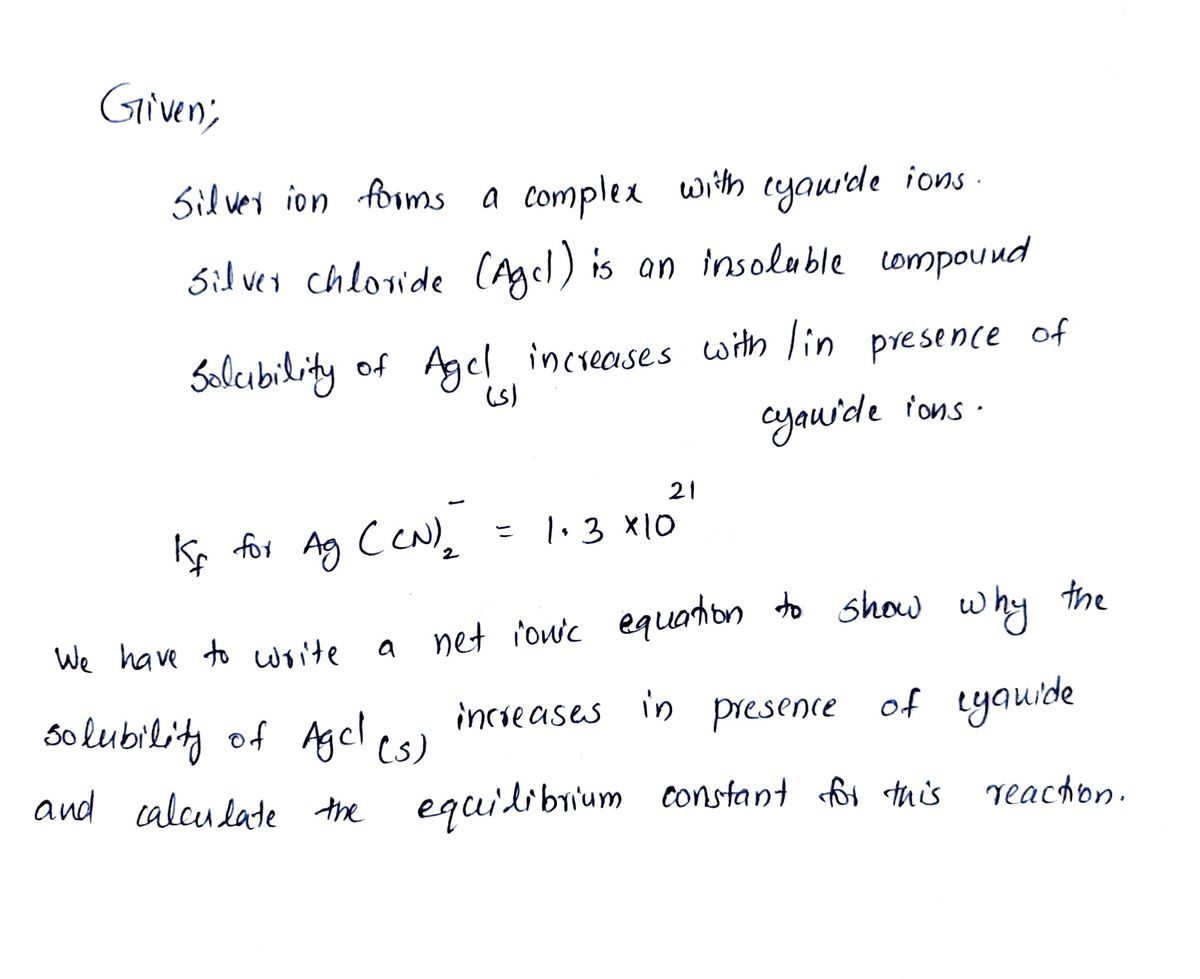 Given;
Silver ion forms a complex with cyanide ions.
Silver chloride (Agcl) is an insoluble compound
Solubility of Agcl (s) increases with / in presence of
cyanide ions.
Kf for Ag (CN)₂⁻ = 1.3 ×10²¹
We have to write a net ionic equation to show why the
solubility of Agcl (s) increases in presence of cyanide
and calculate the equilibrium constant for this reaction.